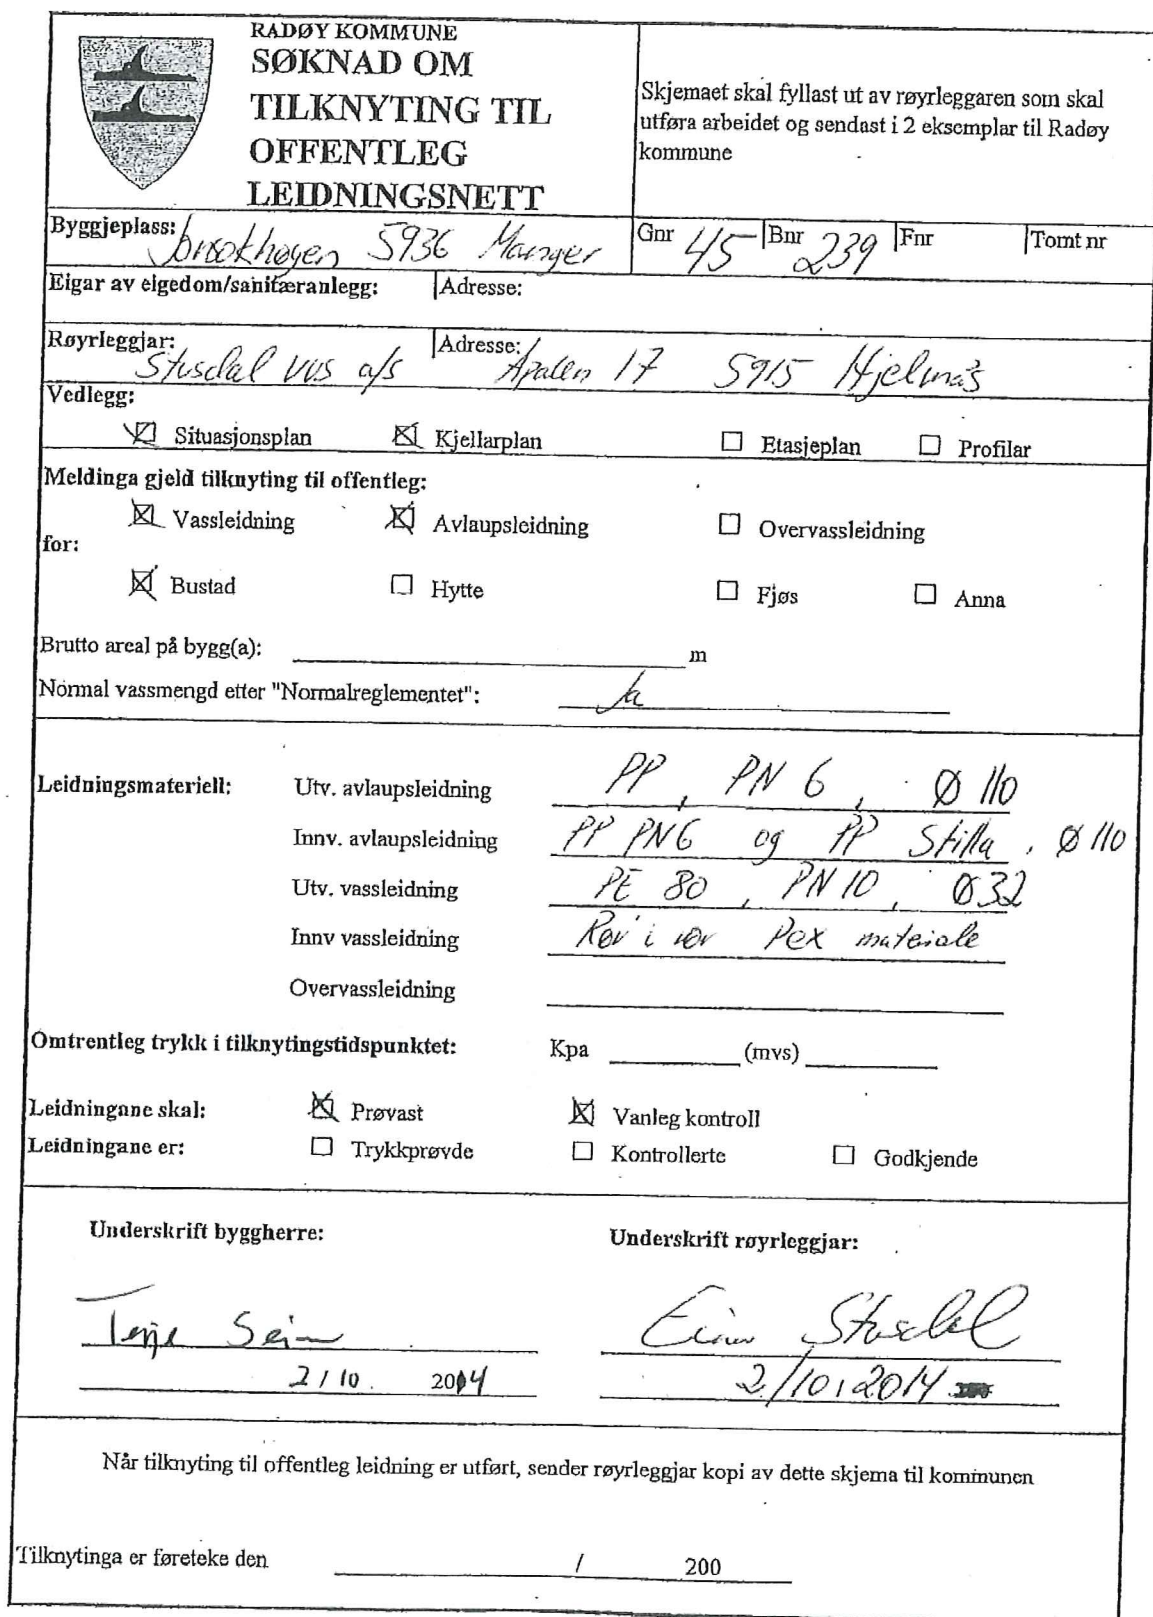 RADØY KOMMUNE
SØKNAD OM
TILKNYTING TIL
OFFENTLEG
LEIDNINGSNETT
Skjemaet skal fyllast ut av røyrleggaren som skal
utføra arbeidet og sendast i 2 eksemplar til Radøy
kommune
Byggjeplass: Jonsokhøgen 5936 Manger Gnr 45 Bnr 239 Fnr Tomt nr
Eigar av eigedom/sanitæranlegg: Adresse:
Røyrleggjar: Stusdal VVS a/s Adresse: Apalen 17 5915 Hjelmås
Vedlegg:
☒ Situasjonsplan ☒ Kjellarplan ☐ Etasjeplan ☐ Profilar
Meldinga gjeld tilknyting til offentleg:
☒ Vassleidning ☒ Avlaupsleidning ☐ Overvassleidning
for:
☒ Bustad ☐ Hytte ☐ Fjøs ☐ Anna
Brutto areal på bygg(a): m
Normal vassmengd etter "Normalreglementet": Ja
Leidningsmateriell: Utv. avlaupsleidning PP, PN 6, Ø 110
Innv. avlaupsleidning PP PN6 og PP Stilla, Ø 110
Utv. vassleidning PE 80, PN 10, Ø32
Innv vassleidning Rør i rør Pex materiale
Overvassleidning
Omtrentleg trykk i tilknytingstidspunktet: Kpa (mvs)
Leidningane skal: ☒ Prøvast ☒ Vanleg kontroll
Leidningane er: ☐ Trykkprøvde ☐ Kontrollerte ☐ Godkjende
Underskrift byggherre: Underskrift røyrleggjar:
Terje Seim Einar Stusdal
2/10. 2014 2/10, 2014
Når tilknyting til offentleg leidning er utført, sender røyrleggjar kopi av dette skjema til kommunen
Tilknytinga er føreteke den / 200